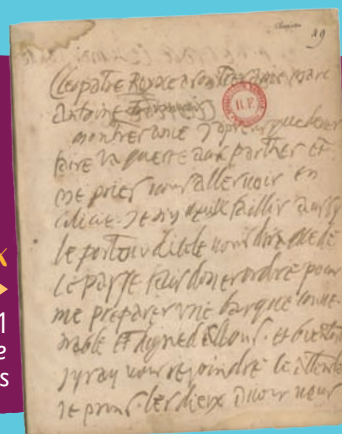 Cleopatre Royne a son tres ame Marc
Antoine
mon tres ame j'apren que devez
faire la guerre aux parthes et
me priez vous aller voir en
cilicie. Je n'y veulx faillir aussy
le porteur dicelle vous dira que de
ce pas je fais doner ordre pour
me preparer une barque conve
nable et digne de vous. et bientost
jyray vous rejoindre
je prie les dieux
B.F.